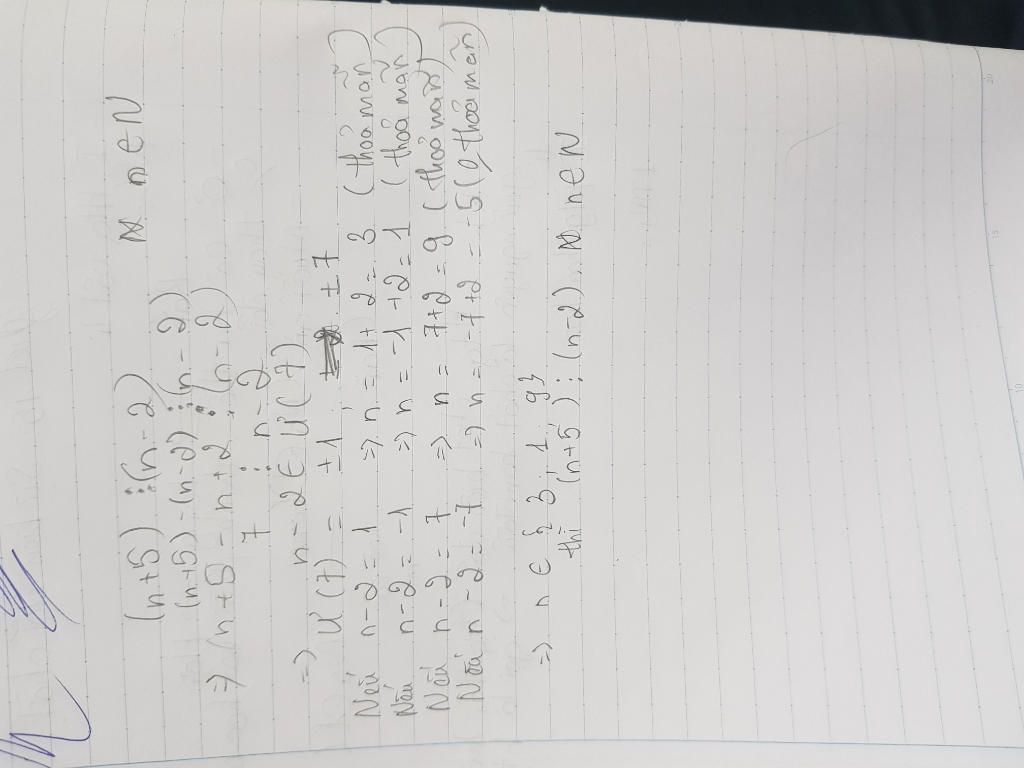 (n+5) ⋮ (n-2) n ∈ N
(n+5) - (n-2) ⋮ (n-2)
=> n+5 - n+2 ⋮ (n-2)
7 ⋮ n-2
=> n-2 ∈ Ư(7)
Ư(7) = ±1, ±7
Nếu n-2 = 1 => n = 1+2 = 3 (thoả mãn)
Nếu n-2 = -1 => n = -1+2 = 1 (thoả mãn)
Nếu n-2 = 7 => n = 7+2 = 9 (thoả mãn)
Nếu n-2 = -7 => n = -7+2 = -5 (0 thoả mãn)
=> n ∈ { 3, 1, 9}
thì (n+5) ⋮ (n-2) n ∈ N